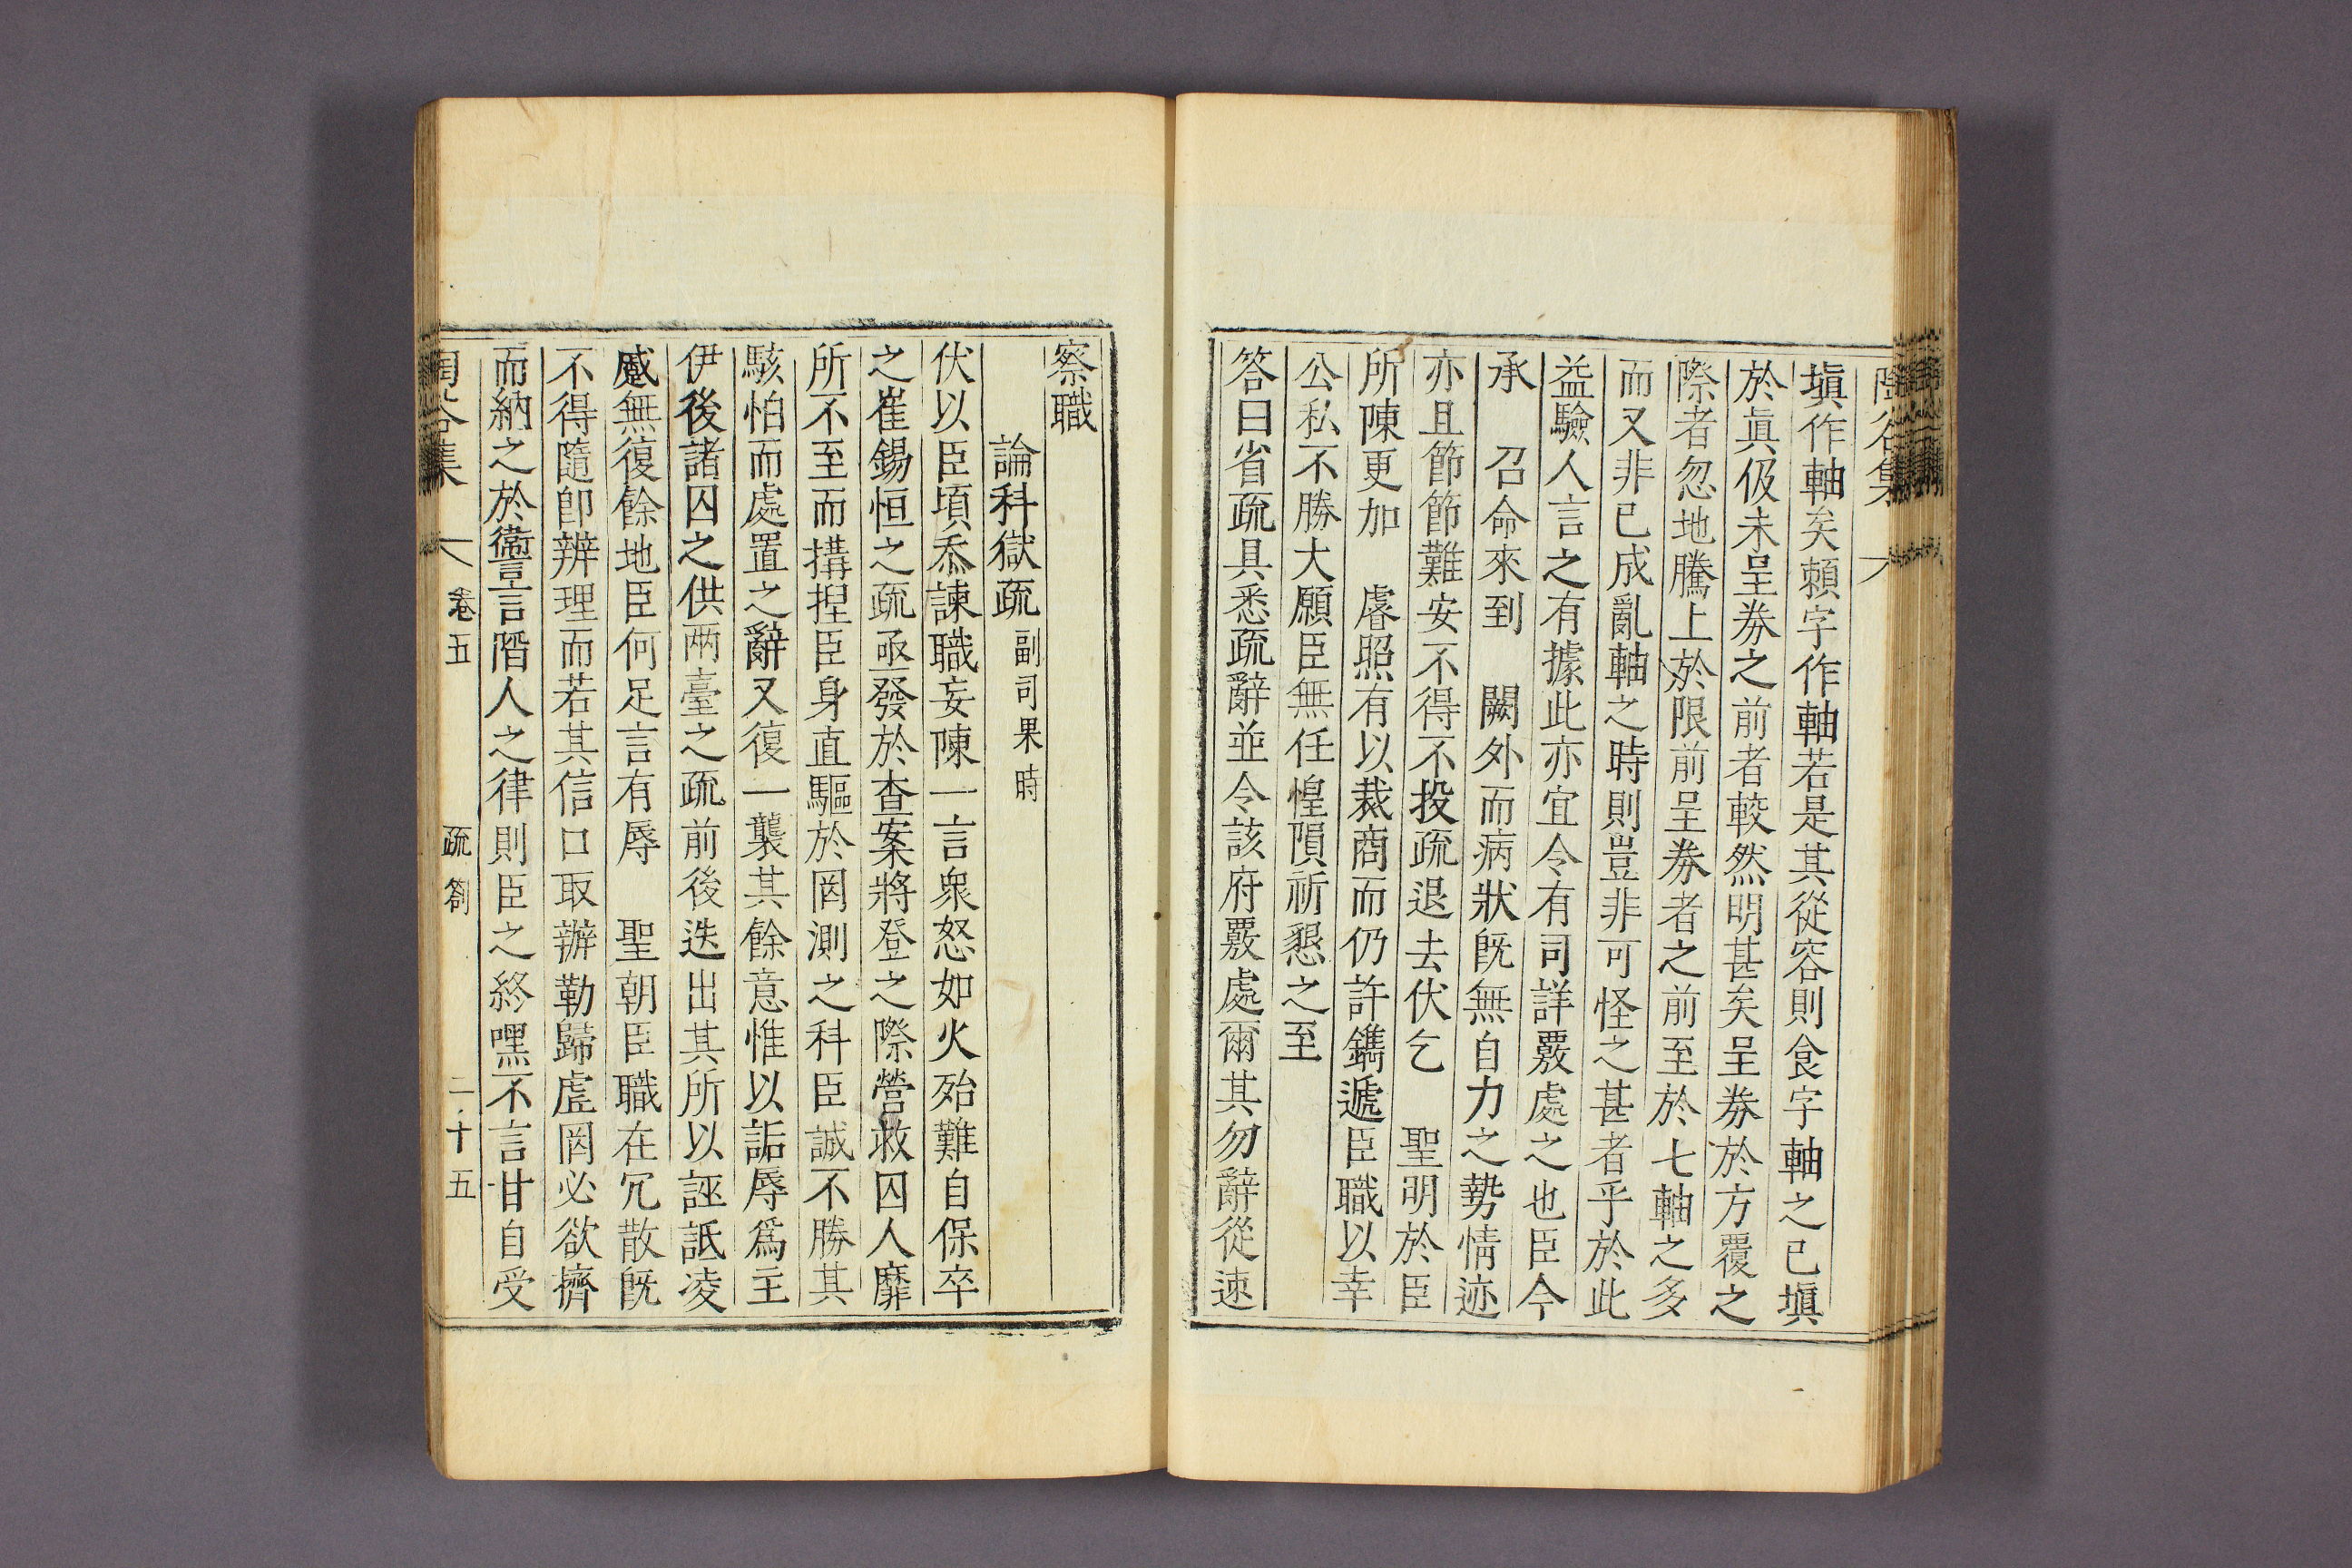 塡作軸矣賴字作軸若是其從容則食字軸之已塡
於眞伋未呈券之前者較然明甚矣呈券於方覆之
際者忽地騰上於限前呈券者之前至於七軸之多
而又非已成亂軸之時則豈非可怪之甚者乎於此
益驗人言之有據此亦宜令有司詳覈處之也臣今
承　召命來到　闕外而病狀旣無自力之勢情迹
亦且節節難安不得不投疏退去伏乞　聖明於臣
所陳更加　睿照有以裁商而仍許鐫遞臣職以幸
公私不勝大願臣無任惶隕祈懇之至
答曰省疏具悉疏辭並令該府覈處爾其勿辭從速
察職
論科獄疏副司果時
伏以臣頃忝諫職妄陳一言衆怒如火殆難自保卒
之崔錫恒之疏亟發於査案將登之際營救囚人靡
所不至而搆捏臣身直驅於罔測之科臣誠不勝其
駭怕而處置之辭又復一襲其餘意惟以詬辱爲主
伊後諸囚之供兩臺之疏前後迭出其所以誣詆凌
蹙無復餘地臣何足言有辱　聖朝臣職在冗散旣
不得隨卽辨理而若其信口取辦勒歸虛罔必欲擠
而納之於讆言陷人之律則臣之終嘿不言甘自受
陶谷集　卷五　疏劄　二十五